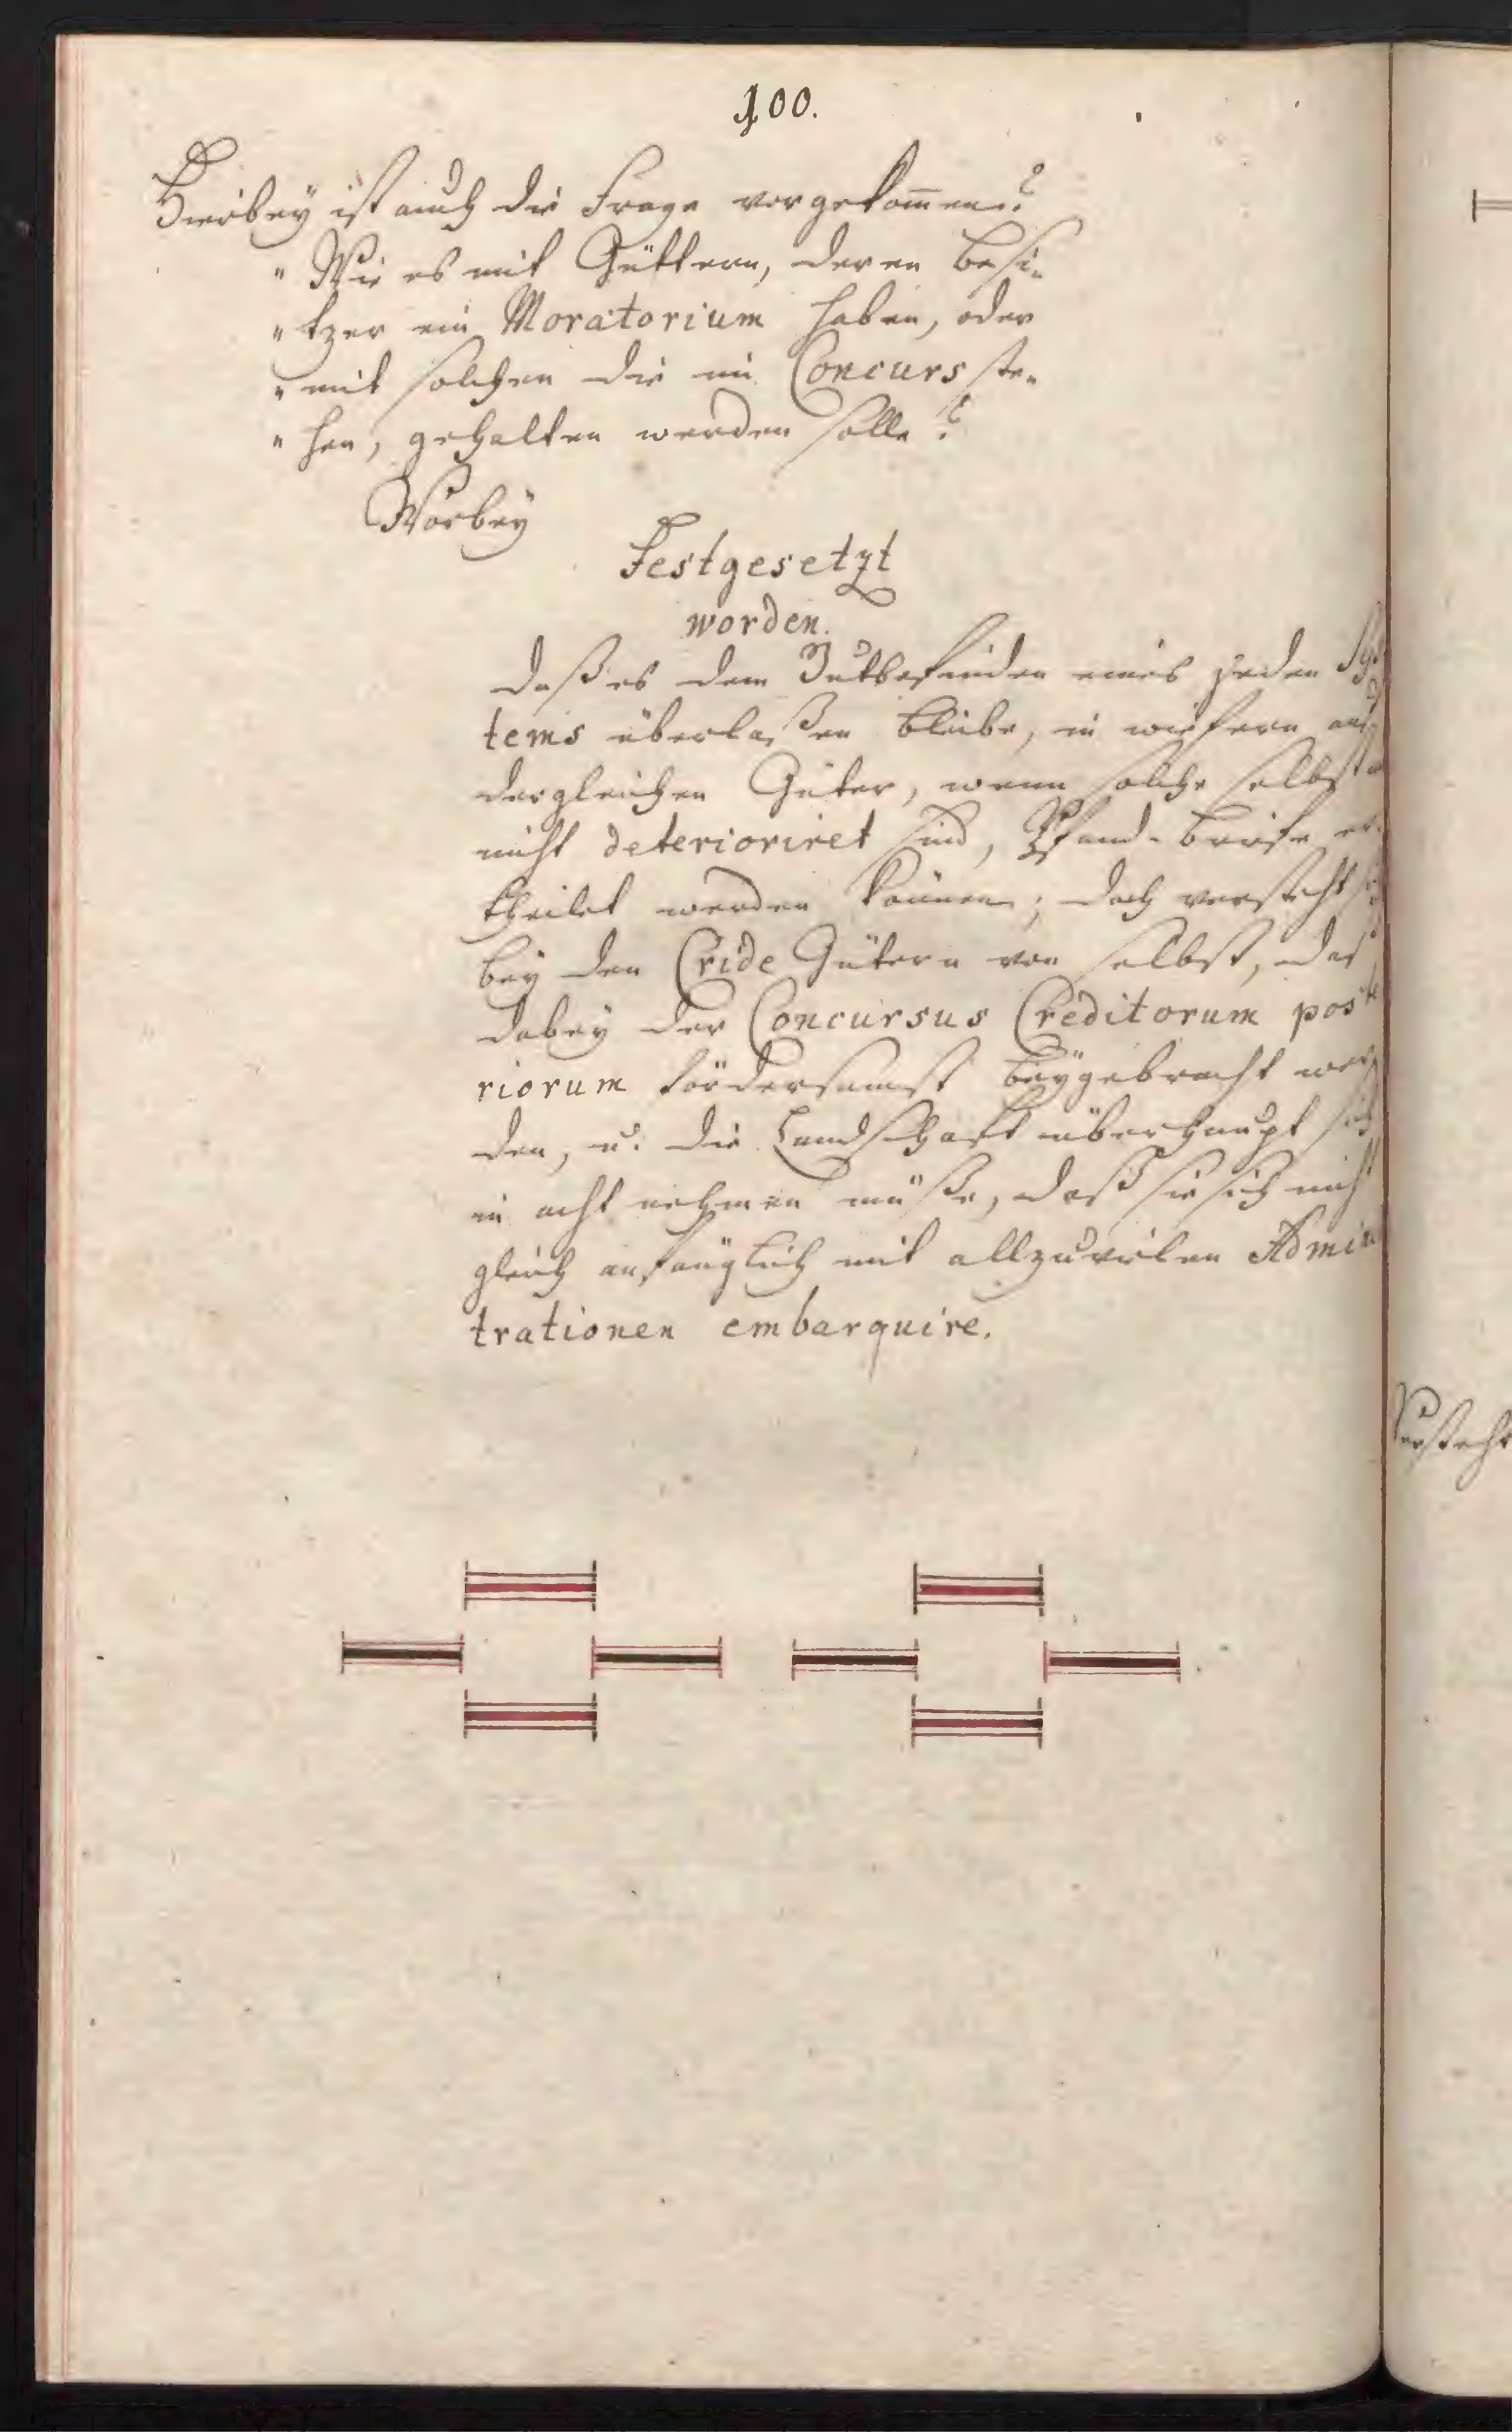 100.
Hierbey ist auch die Frage vorgekom̅en?
" Wie es mit Güttern, deren Besi-
" tzer ein Moratorium haben, oder
" mit solchen die im Concurs ste-
" hen, gehalten werden solle?
Worbey
Festgesetzt
worden.
daß es dem Gutbefinden eines jeden Sys
tems überlaßen bleibe, in wiefern auch
dergleichen Güter, wenn solche selbst
nicht deterioriret sind, Pfand-Briefe er-
theilet werden können; doch versteht sich
bey den Cride Gütern von selbst, daß
dabey der Concursus Creditorum poste
riorum fördersamst beygebracht wer
den, u. die Landschaft überhaupt sich
in acht nehmen müße, daß sie sich nicht
gleich anfänglich mit allzuvielen Admin
trationen embarquire.
Versteht